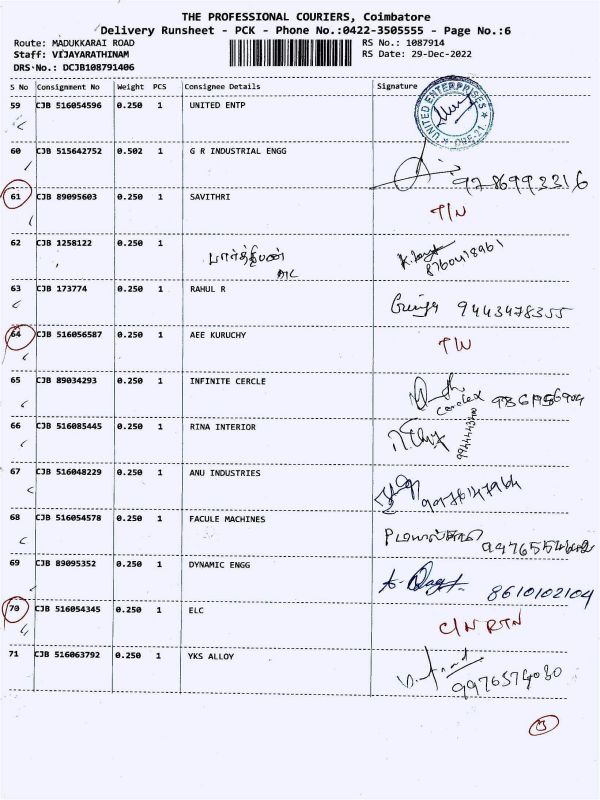 THE PROFESSIONAL COURIERS, Coimbatore
Delivery Runsheet - PCK - Phone No.:0422-3505555 - Page No.:6
Route: MADUKKARAI ROAD RS No.: 1087914
Staff: VIJAYARATHINAM RS Date: 29-Dec-2022
DRS No.: DCJB108791406
S No Consignment No Weight PCS Consignee Details Signature
59 CJB 516054596 0.250 1 UNITED ENTP
UNITED ENTERPRISES
60 CJB 515642752 0.502 1 G R INDUSTRIAL ENGG
9786993316
61 CJB 89095603 0.250 1 SAVITHRI
T/N
62 CJB 1258122 0.250 1 பார்த்திபன்
8760418961
63 CJB 173774 0.250 1 RAHUL R
9443478355
64 CJB 516056587 0.250 1 AEE KURUCHY
T/N
65 CJB 89034293 0.250 1 INFINITE CERCLE
66 CJB 516085445 0.250 1 RINA INTERIOR
67 CJB 516048229 0.250 1 ANU INDUSTRIES
68 CJB 516054578 0.250 1 FACULE MACHINES
69 CJB 89095352 0.250 1 DYNAMIC ENGG
8610102104
70 CJB 516054345 0.250 1 ELC
C/N RTN
71 CJB 516063792 0.250 1 YKS ALLOY
9976574080